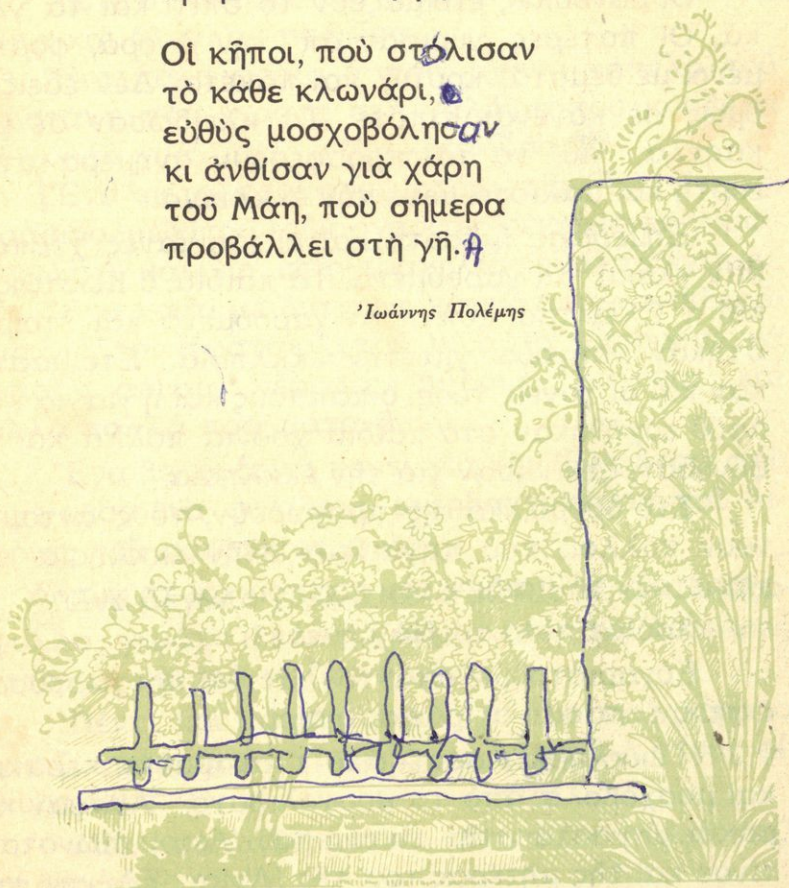 Οἱ κῆποι, ποὺ στόλισαν
τὸ κάθε κλωνάρι,
εὐθὺς μοσχοβόλησαν
κι ἀνθίσαν γιὰ χάρη
τοῦ Μάη, ποὺ σήμερα
προβάλλει στὴ γῆ.
Ἰωάννης Πολέμης